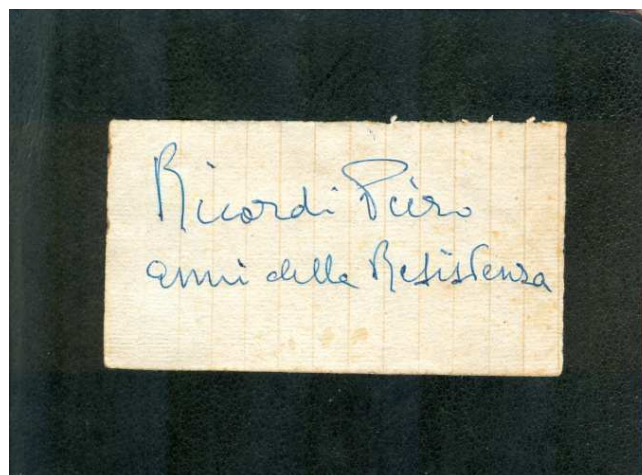 Ricordi Piero
anni della Resistenza